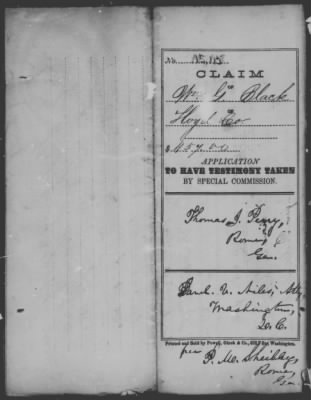 No.
CLAIM
Wm G. Black
Floyd Co
$457.50
APPLICATION
TO HAVE TESTIMONY TAKEN
BY SPECIAL COMMISSION.
Thomas J. Perry,
Rome,
Ga.
V. Niles, Atty
Washington,
D.C.
Printed and Sold by Powell, Ginck & Co., Washington.
per
P. M. Sheibley,
Rome,
Ga